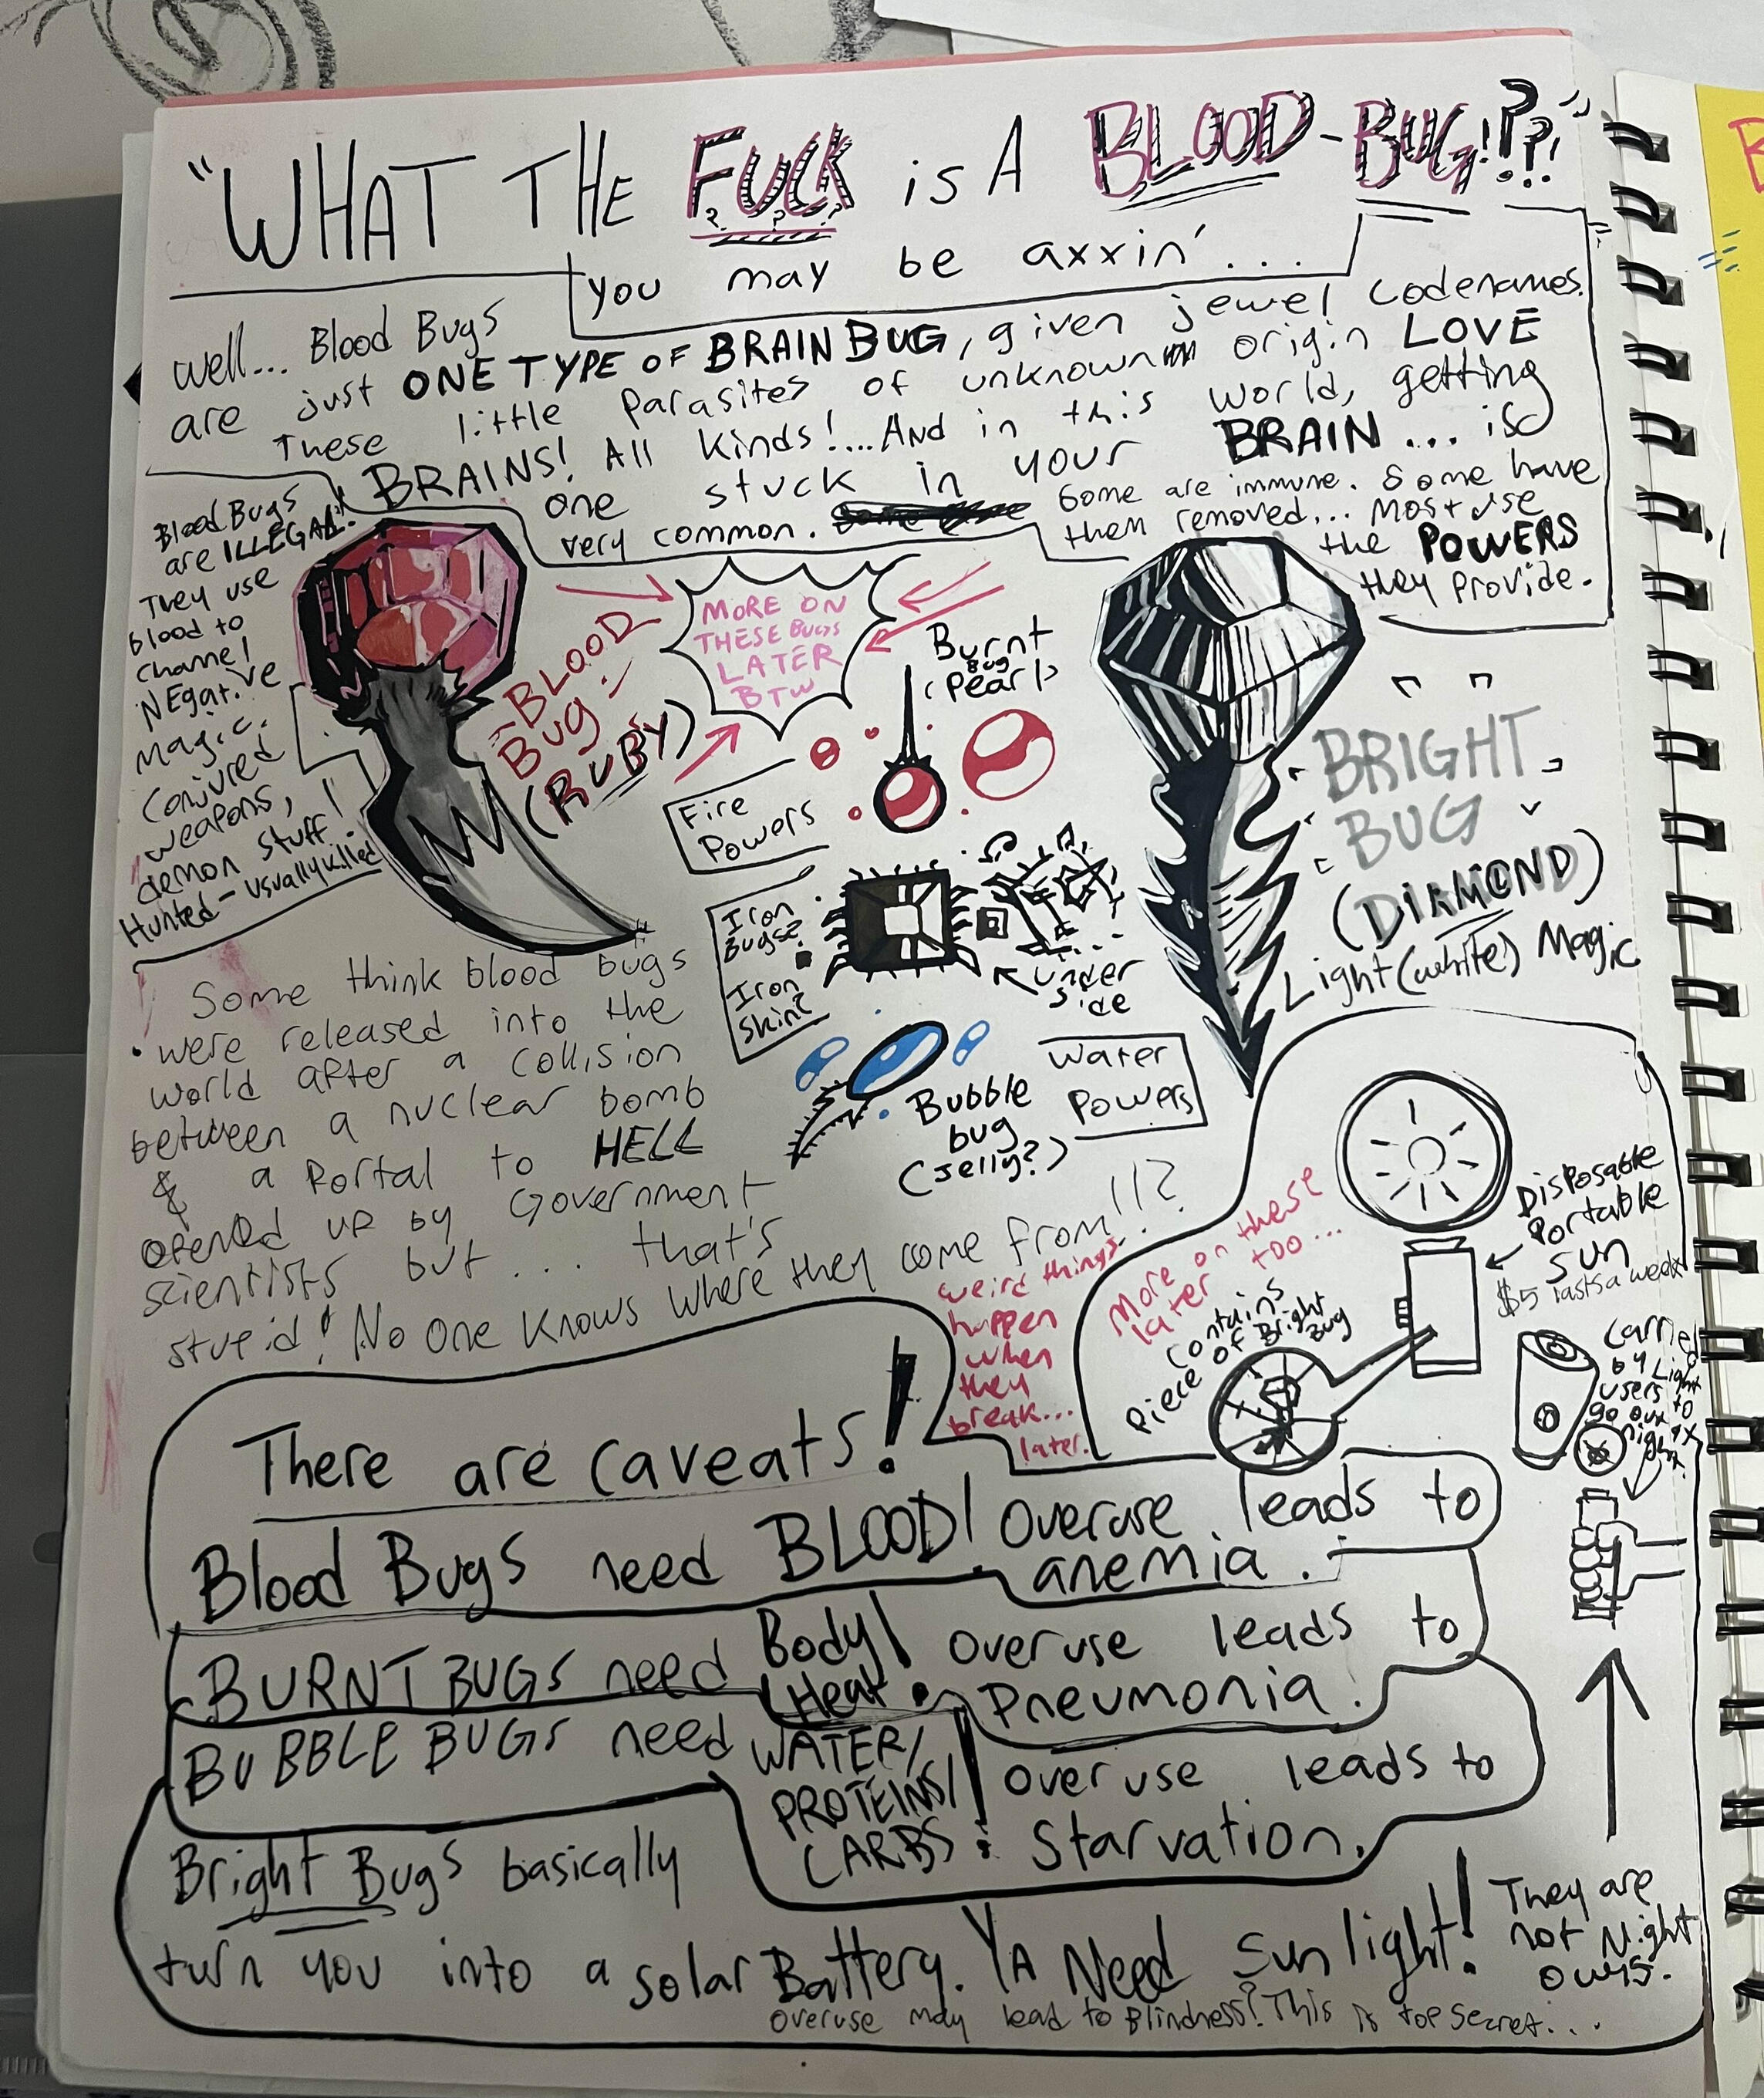 "WHAT THE FUCK is A BLOOD-BUG!?!?!"
? ? ?
you may be axxin'...
well... Blood Bugs
are just ONE TYPE OF BRAIN BUG, given jewel codenames.
These little parasites of unknown origin LOVE
BRAINS! All kinds!....And in this world, getting
one stuck in your BRAIN... is
very common. Some are immune. Some have
them removed... most use
the POWERS
they provide.
Blood Bugs
are ILLEGAL!
They use
blood to
channel
NEgative
magic.
Conjured
weapons,
demon stuff!
Hunted - usually killed
BLOOD
Bug!
(RUBY)
MORE ON
THESE BUGS
LATER
BTW
Burnt
Bug
(Pearl)
Fire
Powers
Iron
Bugs?
Iron
Skin?
under
side
BRIGHT
BUG
(DIAMOND)
Light (white) Magic
Water
Powers
Bubble
bug
(Jelly?)
• Some think blood bugs
were released into the
world after a collision
between a nuclear bomb
& a Portal to HELL
opened up by Government
scientists but... that's
stupid! No One Knows where they come from!!?
weird things
happen
when
they
break...
later.
More on these
later too...
Contains
Piece of Bright
Bug
Disposable
Portable
Sun
$5 lasts a week
Carried
by Light
users to
go out at
night.
There are caveats!
Blood Bugs need BLOOD! Overuse leads to
anemia.
BURNT BUGS need Body Heat! overuse leads to
Pneumonia.
BUBBLE BUGS need WATER/
PROTEINS/
CARBS! overuse leads to
Starvation.
Bright Bugs basically
turn you into a solar Battery. YA Need Sunlight!
They are
not Night
owls.
overuse may lead to Blindness? This is top secret...